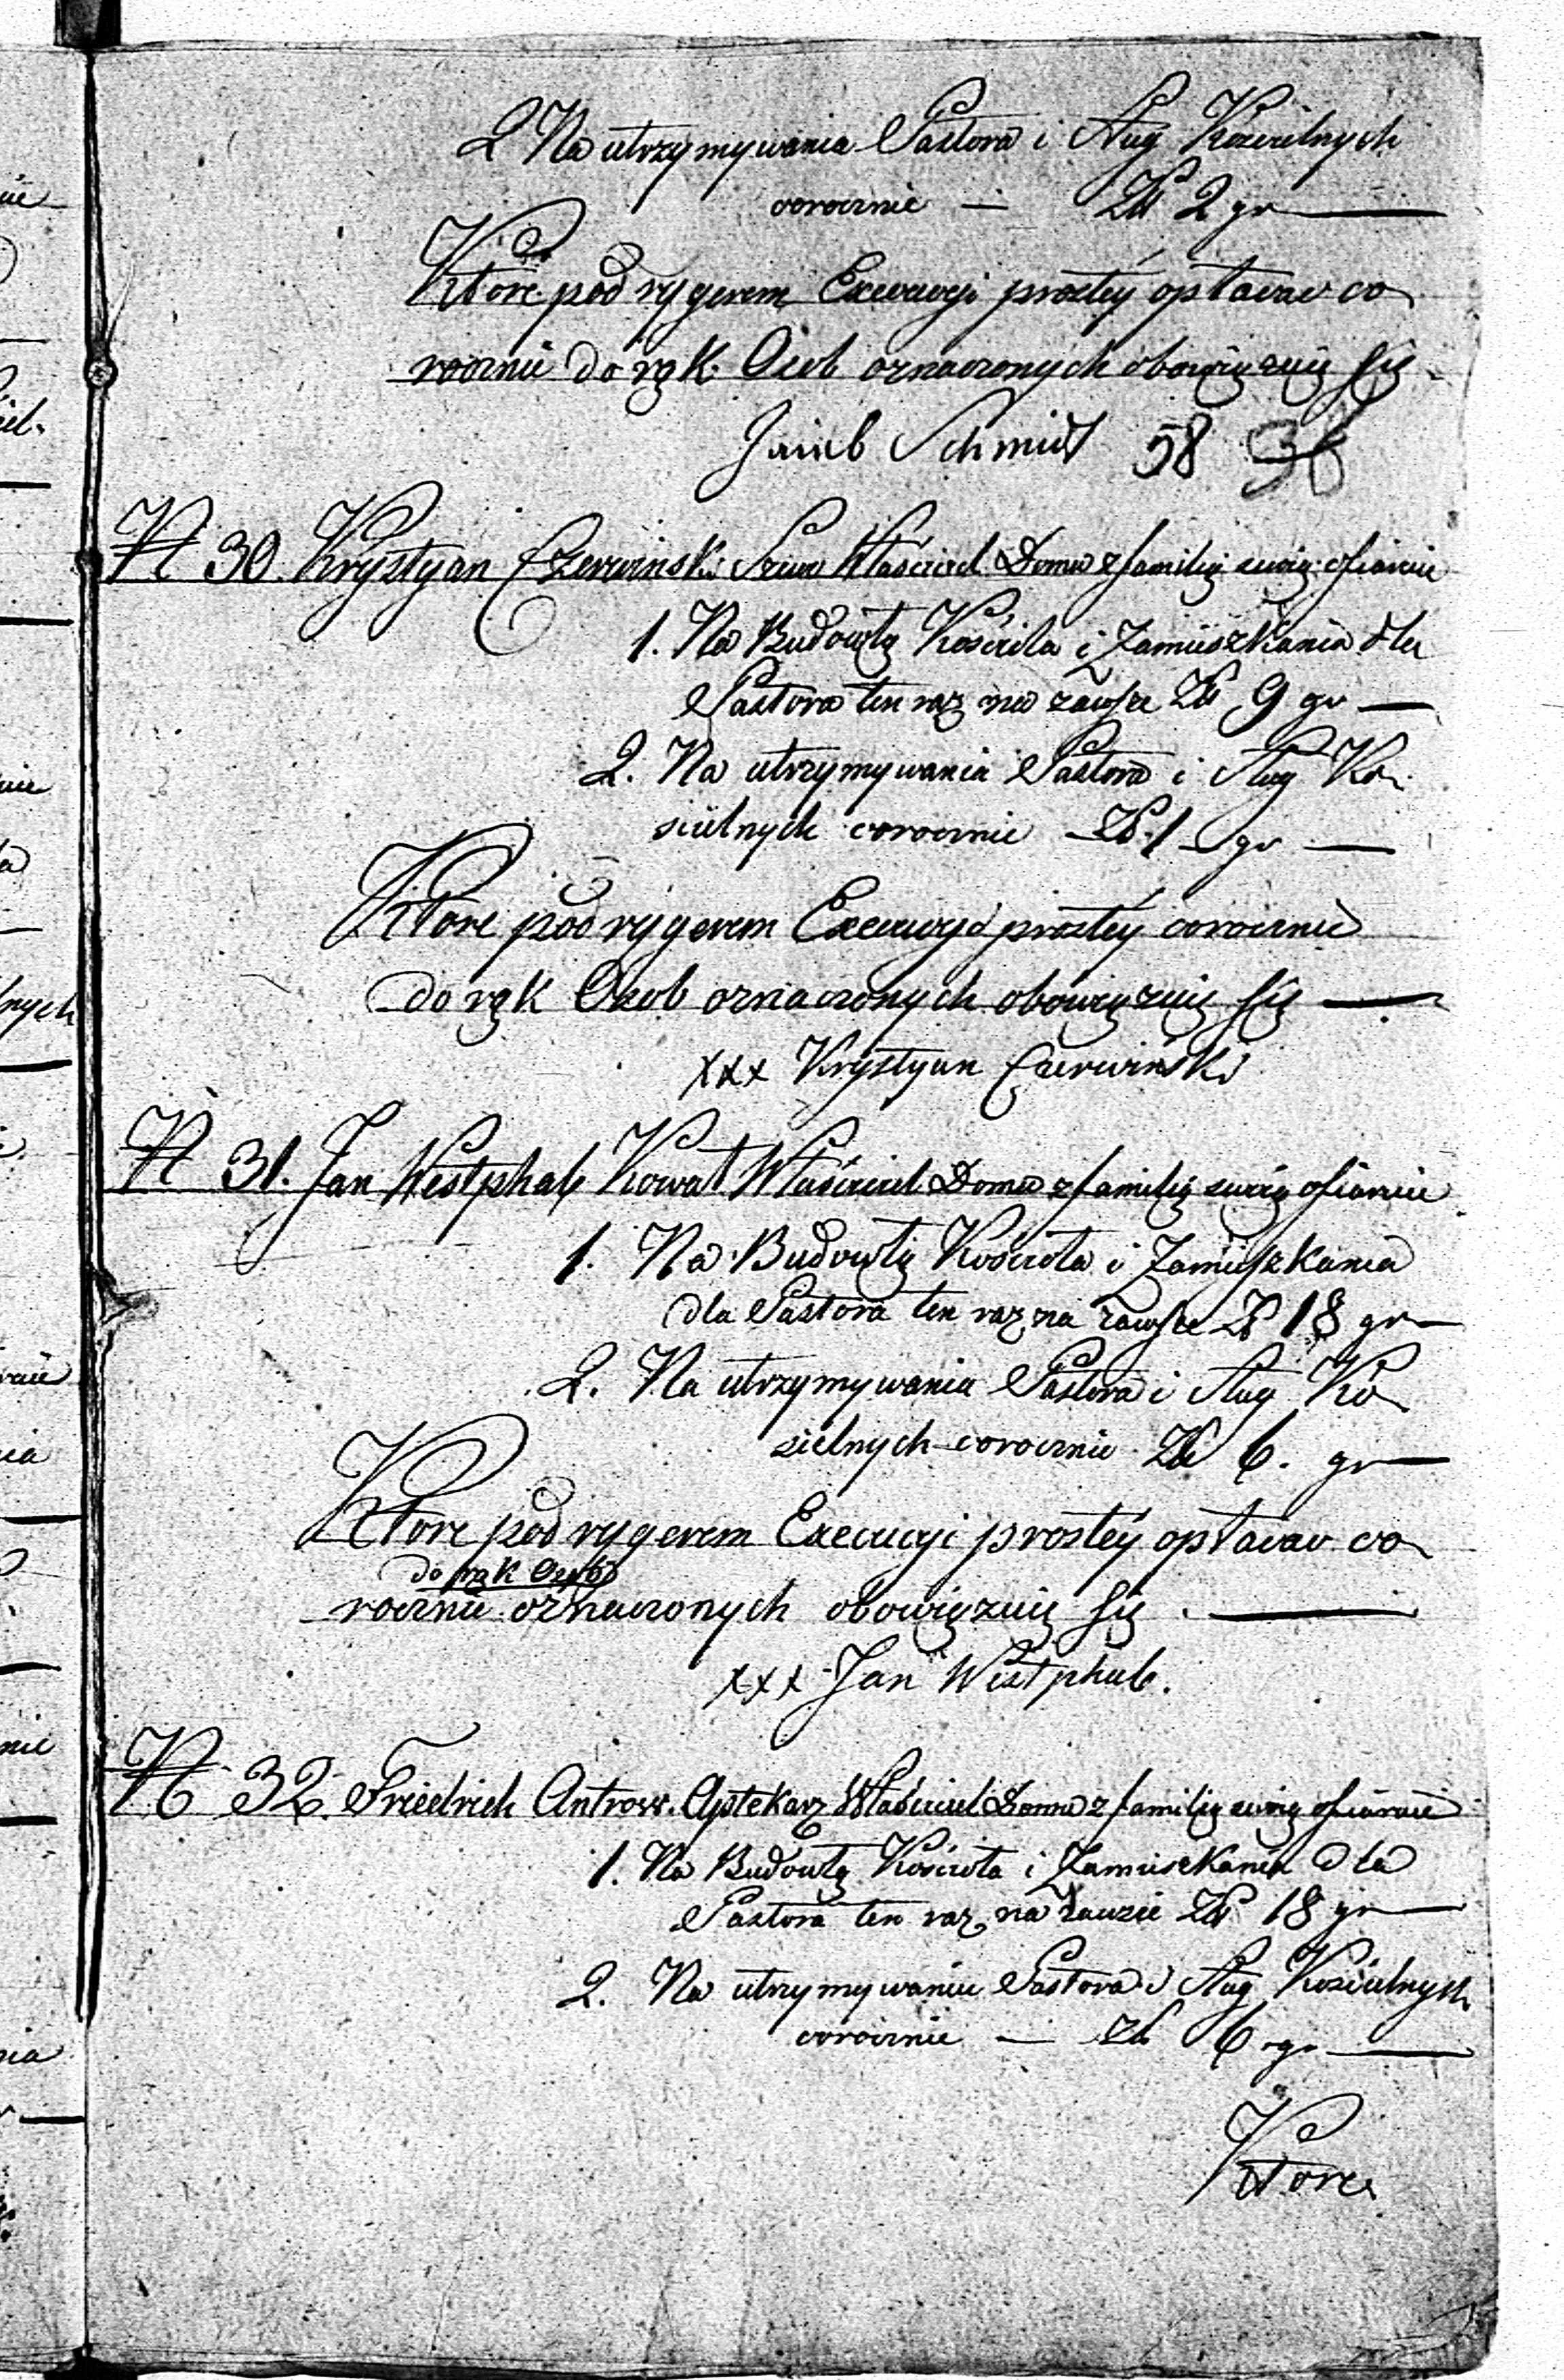 2 Na utrzymywania Pastora i Sług Kozcielnych
corocznie — Zł 2 gr —
Ktore pod rygerem Execucyi prostéy opłacac co
rocznie do rąk Osob oznaczonych obowięzuię się
Jacob Schmidt 58
N 30. Krystyan Czerwinski Szewc Właściciel Domu z familią swoią ofiaruie
1. Na Budowlą Kościoła i Zamieszkania dla
Pastora ten raz na zawsze Zł 9 gr —
2. Na utrzymywania Pastora i Sług Ko
scielnych corocznie Zł 1 gr —
Ktore pod rygerem Execucyi prostéy corocznie
do rąk Osob oznaczonych obowięzuię się —
xxx Krystyan Czerwiński
N 31. Jan Westphal Kowal Właściciel Domu z familią swoią ofiaruie
1. Na Budowlę Kościoła i Zamieszkania
dla Pastora ten raz na zawsze Zł 18 gr —
2. Na utrzymywania Pastora i Sług Ko
scielnych corocznie Zł 6. gr —
Ktore pod rygerem Execucyi prostéy opłacac co
do rąk Osob
rocznie oznaczonych obowięzuię się —
xxx Jan Westphal.
N 32 Friedrich Antrow. Aptekarz Właściciel Domu z familią swoią ofiaruie
1. Na Budowlą Kościoła i Zamieszkania dla
Pastora ten raz na zawsze Zł 18 gr —
2. Na utrzymywaniu Pastora i Sług Kościelnych
corocznie — Zł 6 gr —
Ktore